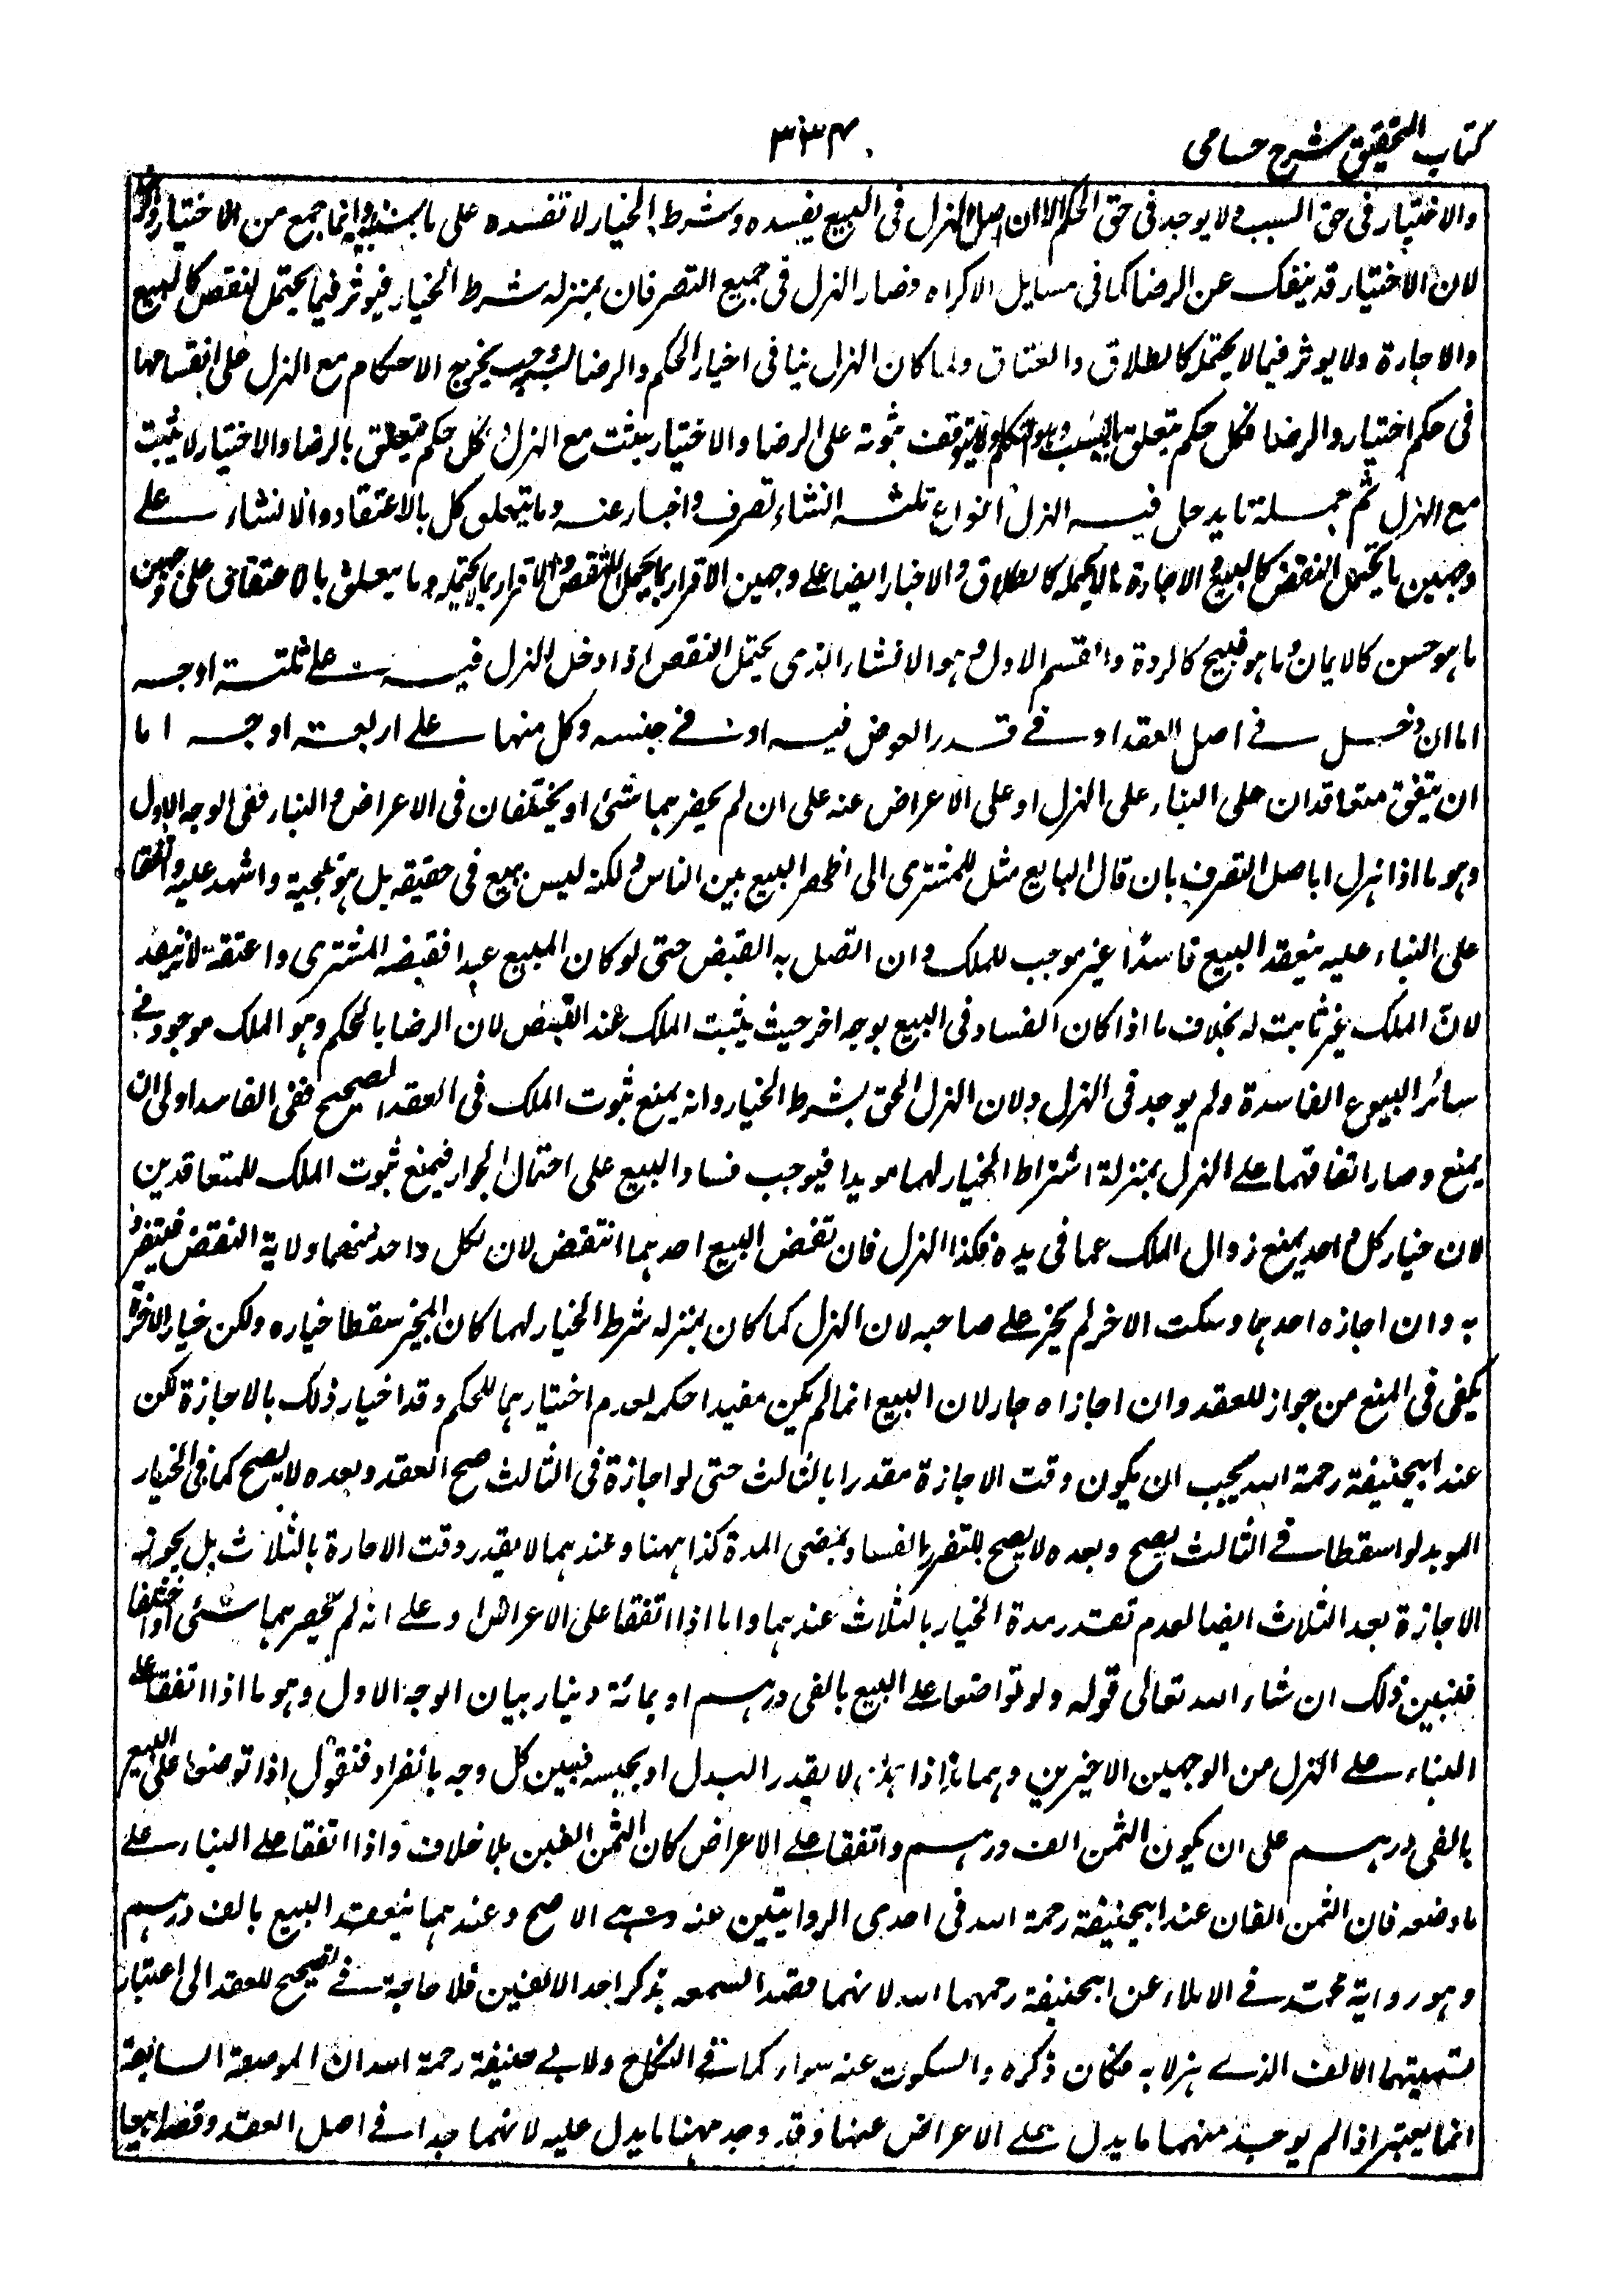 كتاب التحقيق شرح حسامى
۳۳۴
والاختيار فى حق السبب ولا يوجد فى حق الحكم الا ان اصل الهزل فى البيع يفسده وشرط الخيار لا تفسده على ما وانما جمع من الاختيار
لان الاختيار قد ينفك عن الرضا كما فى مسايل الاكراه فصار الهزل فى جميع التصرفات بمنزله شرط الخيار فيوثر فيما يحتمل النقض كالبيع
والاجارة ولا يوثر فيما لا يحتمله كالطلاق والعتاق ولما كان الهزل ينافى اختيار الحكم والرضا به يخرج الاحكام مع الهزل على انقسامها
فى حكم اختيار والرضا فكل حكم متعلق بالسبب ولا يتوقف ثبوته على الرضا والاختيار يثبت مع الهزل وكل حكم متعلق بالرضا والاختيار لا يثبت
مع الهزل ثم جملة ما يدخل فيه الهزل انواع ثلثه انشاء تصرف واخبار عنه وما يتعلق كل بالاعتقاد والانشاء على
وجهين ما يحتمل النقض كالبيع والاجارة وما لا يحتمله كالطلاق والاخبار ايضا على وجهين الاقرار بما يحتمل النقض والاقرار بما لا يحتمله وما يتعلق بالاعتقاد على وجهين
ما هو حسن كالايمان وما هو قبيح كالردة والقسم الاول وهو الانشاء الذى يحتمل النقض اذا دخل الهزل فيه على ثلثة اوجه
اما ان دخل فى اصل العقد او فى قدر العوض فيه او فى جنسه وكل منها على اربعة اوجه اما
ان يتفق متعاقدان على البناء على الهزل او على الاعراض عنه على ان لم يحضرهما شئ او يختلفان فى الاعراض والبناء ففى الوجه الاول
وهو ما اذا هزلا باصل التصرف بان قال البايع مثل للمشترى انى اظهر البيع بين الناس ولكنه ليس ببيع فى حقيقه بل هو تلجية واشهد عليه واتفقا
على البناء عليه ينعقد البيع فاسدا غير موجب للملك وان اتصل به القبض حتى لو كان المبيع عبدا فقبضه المشترى واعتقه لا ينفذ
لان الملك غير ثابت له بخلاف ما اذا كان الفساد فى البيع بوجه اخر حيث يثبت الملك عند القبض لان الرضا بالحكم وهو الملك موجود فى
سائر البيوع الفاسدة ولم يوجد فى الهزل ولان الهزل الحق بشرط الخيار وانه يمنع ثبوت الملك فى العقد الصحيح ففى الفاسد اولى ان
يمنع وصار اتفاقهما على الهزل بمنزلة اشتراط الخيار لهما موبدا فيوجب فساد البيع على احتمال الجواز فيمنع ثبوت الملك للمتعاقدين
لان خيار كل واحد يمنع زوال الملك عما فى يده فكذا الهزل فان نقض البيع احدهما انتقض لان لكل واحد منهما ولاية النقض فيتفرد
به وان اجازه احدهما وسكت الاخر لم يجز على صاحبه لان الهزل كما كان بمنزله شرط الخيار لهما كان المجيز سقطا خياره ولكن خيار الاخر
يكفى فى المنع من جواز للعقد وان اجازاه جاز لان البيع انما لم يكن مفيدا حكمه لعدم اختيارهما للحكم وقد اختيار ذلك بالاجازة لكن
عند ابيحنيفة رحمة الله يجب ان يكون وقت الاجازة مقدرا بالثالث حتى لو اجازة فى الثالث صح العقد وبعده لا يصح كما فى الخيار
الموبد لو اسقطا فى الثالث يصح وبعده لا يصح للتقرر الفساد بمضى المدة كذا ههنا وعندهما لا يقدر وقت الاجارة بالثلاث بل يجوز
الاجازة بعد الثلاث ايضا لعدم تقدر مدة الخيار بالثلاث عندهما واما اذا اتفقا على الاعراض او على انه لم يحضرهما شئ او اختلفا
فنبين ذلك ان شاء الله تعالى قوله ولو تواضعا على البيع بالفى درهم او بمائة دينار بيان الوجه الاول وهو ما اذا اتفقا على
البناء على الهزل من الوجهين الاخيرين وهما ما اذا هزلا بقدر البدل او بجنسه فنبين كل وجه بانفراد فنقول اذا تواضعا على البيع
بالفى درهم على ان يكون الثمن الف درهم واتفقا على الاعراض كان الثمن الفين بلا خلاف واذا اتفقا على البناء على
ما وضعه فان الثمن الفان عند ابيحنيفة رحمة الله فى احدى الروايتين عنه وهى الاصح وعندهما ينعقد البيع بالف درهم
وهو رواية محمد فى الاملاء عن ابيحنيفة رحمهما الله لانهما قصدا السمعه بذكر احد الالفين فلا حاجة فى تصحيح للعقد الى اعتبار
تسميتهما الالف الذى هزلا به فكان ذكره والسكوت عنه سواء كما فى النكاح ولابى حنيفة رحمة الله ان المواضعة السابقة
انما يعتبر اذا لم يوجد منهما ما يدل على الاعراض عنها وقد وجد ههنا ما يدل عليه لانهما جدا فى اصل العقد وقصدا بيعا